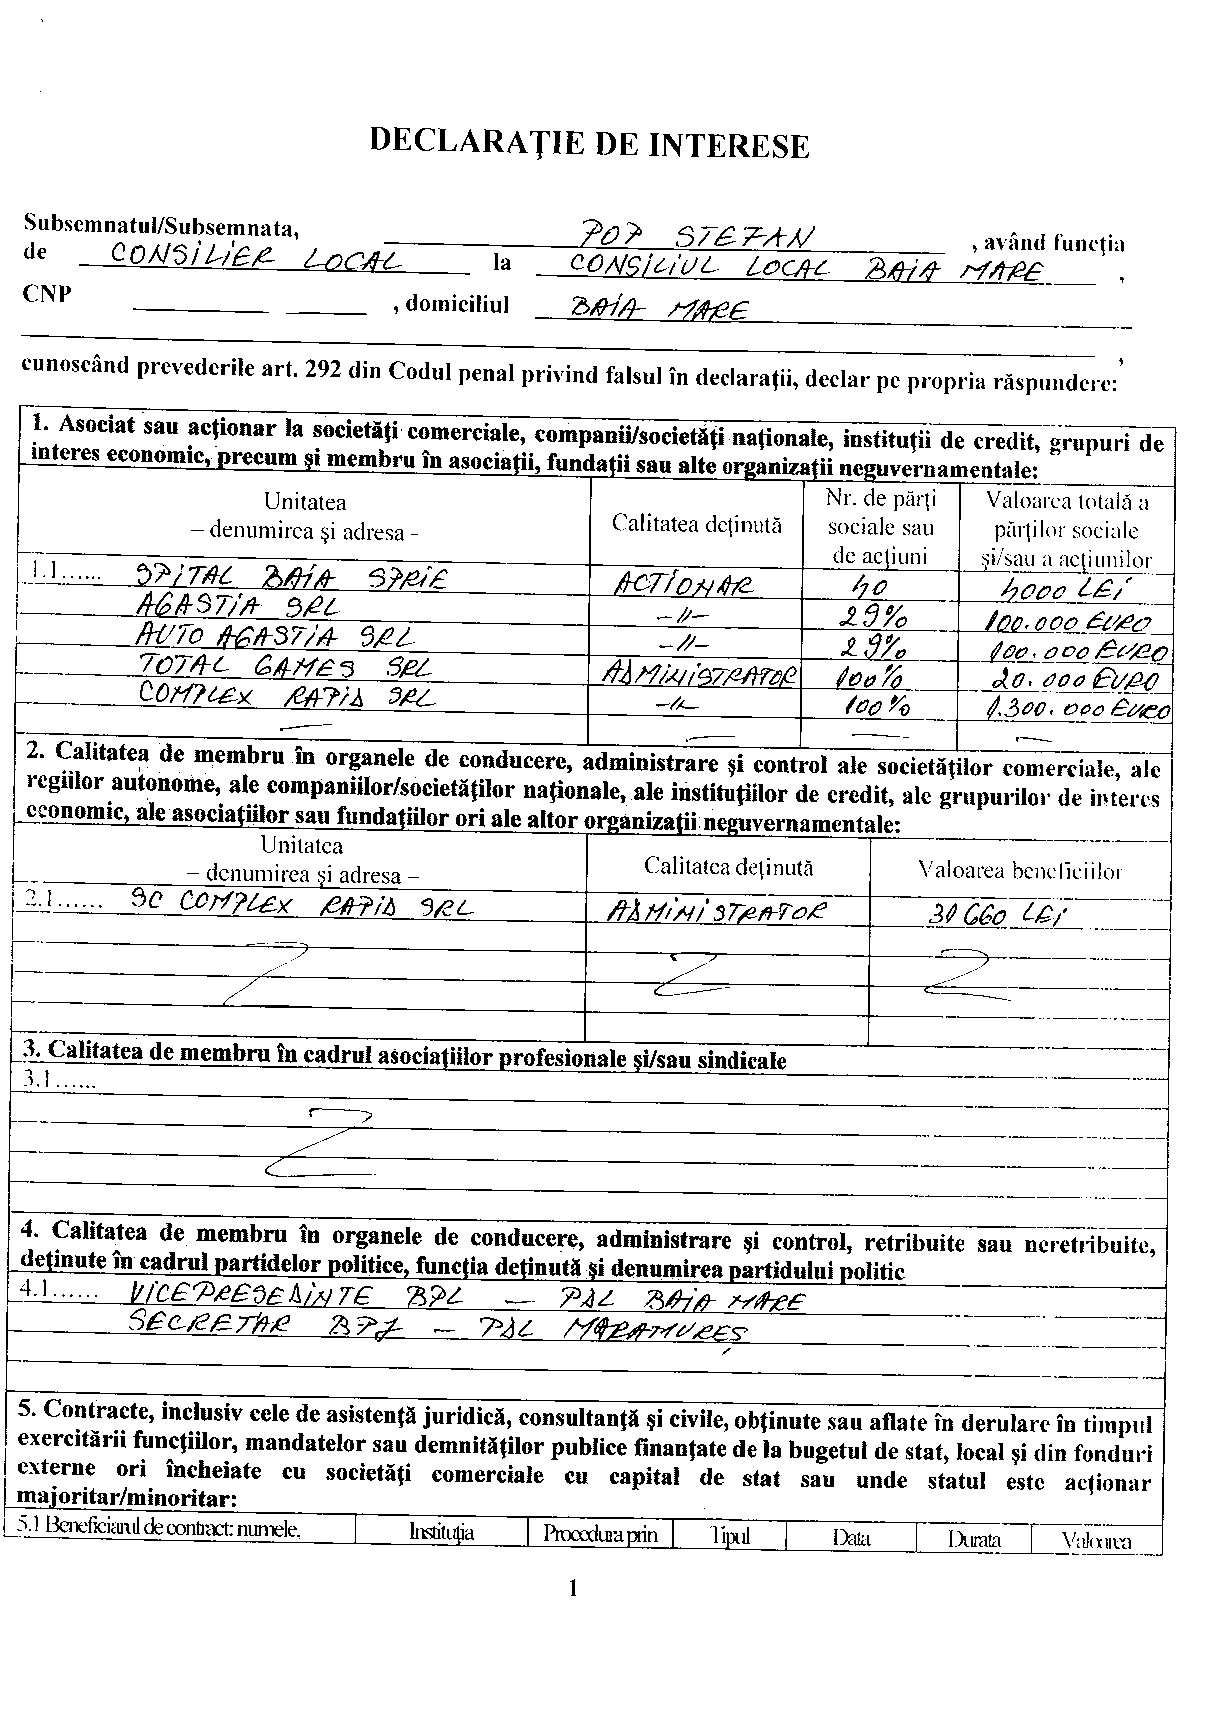 DECLARAŢIE DE INTERESE
Subsemnatul/Subsemnata, POP STEFAN , având funcţia
de CONSILIER LOCAL la CONSILIUL LOCAL BAIA MARE ,
CNP , domiciliul BAIA MARE
,
cunoscând prevederile art. 292 din Codul penal privind falsul în declaraţii, declar pe propria răspundere:
1. Asociat sau acţionar la societăţi comerciale, companii/societăţi naţionale, instituţii de credit, grupuri de
interes economic, precum şi membru în asociaţii, fundaţii sau alte organizaţii neguvernamentale:
Unitatea
– denumirea şi adresa -
Calitatea deţinută
Nr. de părţi
sociale sau
de acţiuni
Valoarea totală a
părţilor sociale
şi/sau a acţiunilor
1.1...... SPITAL BAIA SPRIE ACTIONAR 40 4000 LEI
AGASTIA SRL -//- 29% 100.000 EURO
AUTO AGASTIA SRL -//- 29% 100.000 EURO
TOTAL GAMES SRL ADMINISTRATOR 100% 20.000 EURO
COMPLEX RAPID SRL -//- 100% 1.300.000 EURO
— — — —
2. Calitatea de membru în organele de conducere, administrare şi control ale societăţilor comerciale, ale
regiilor autonome, ale companiilor/societăţilor naţionale, ale instituţiilor de credit, ale grupurilor de interes
economic, ale asociaţiilor sau fundaţiilor ori ale altor organizaţii neguvernamentale:
Unitatea
– denumirea şi adresa –
Calitatea deţinută
Valoarea beneficiilor
2.1...... SC COMPLEX RAPID SRL ADMINISTRATOR 30660 LEI
3. Calitatea de membru în cadrul asociaţiilor profesionale şi/sau sindicale
3.1......
4. Calitatea de membru în organele de conducere, administrare şi control, retribuite sau neretribuite,
deţinute în cadrul partidelor politice, funcţia deţinută şi denumirea partidului politic
4.1...... VICEPRESEDINTE BPL – PDL BAIA MARE
SECRETAR BPJ – PDL MARAMUREŞ
5. Contracte, inclusiv cele de asistenţă juridică, consultanţă şi civile, obţinute sau aflate în derulare în timpul
exercitării funcţiilor, mandatelor sau demnităţilor publice finanţate de la bugetul de stat, local şi din fonduri
externe ori încheiate cu societăţi comerciale cu capital de stat sau unde statul este acţionar
majoritar/minoritar:
5.1 Beneficiarul de contract: numele, Instituţia Procedura prin Tipul Data Durata Valoarea
1